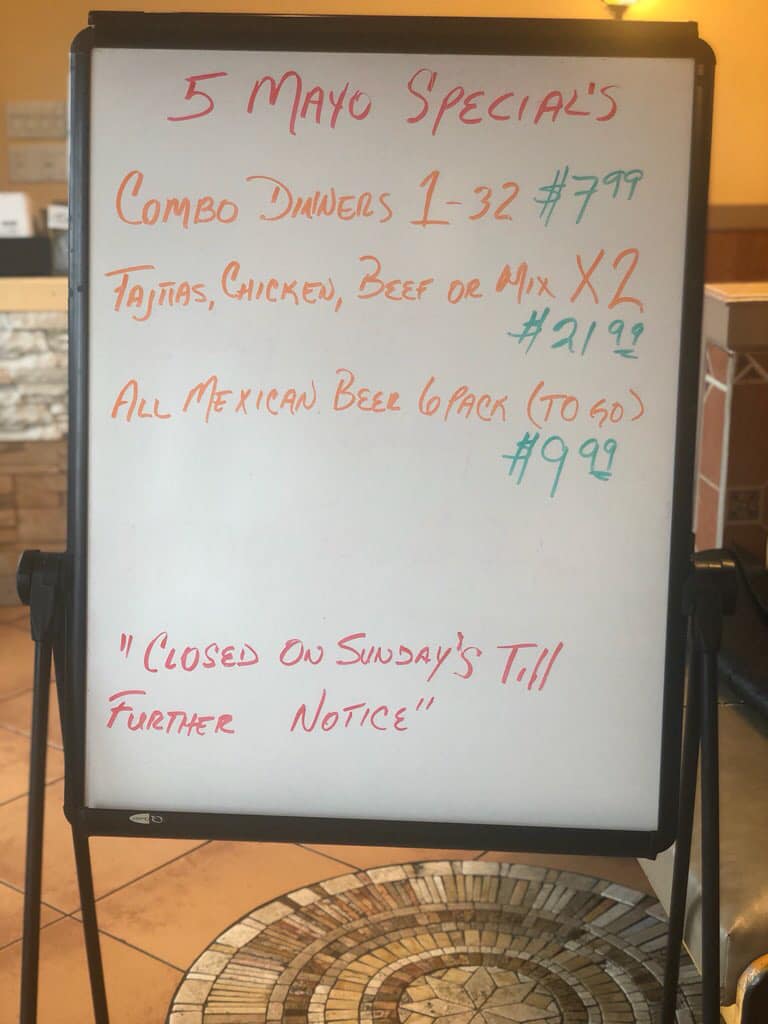 5 MAYO SPECIAL'S
COMBO DINNERS 1-32 $7.99
FAJITAS, CHICKEN, BEEF OR MIX X2
$21.99
ALL MEXICAN BEER 6 PACK (TO GO)
$9.99
"CLOSED ON SUNDAY'S Till
FURTHER NOTICE"